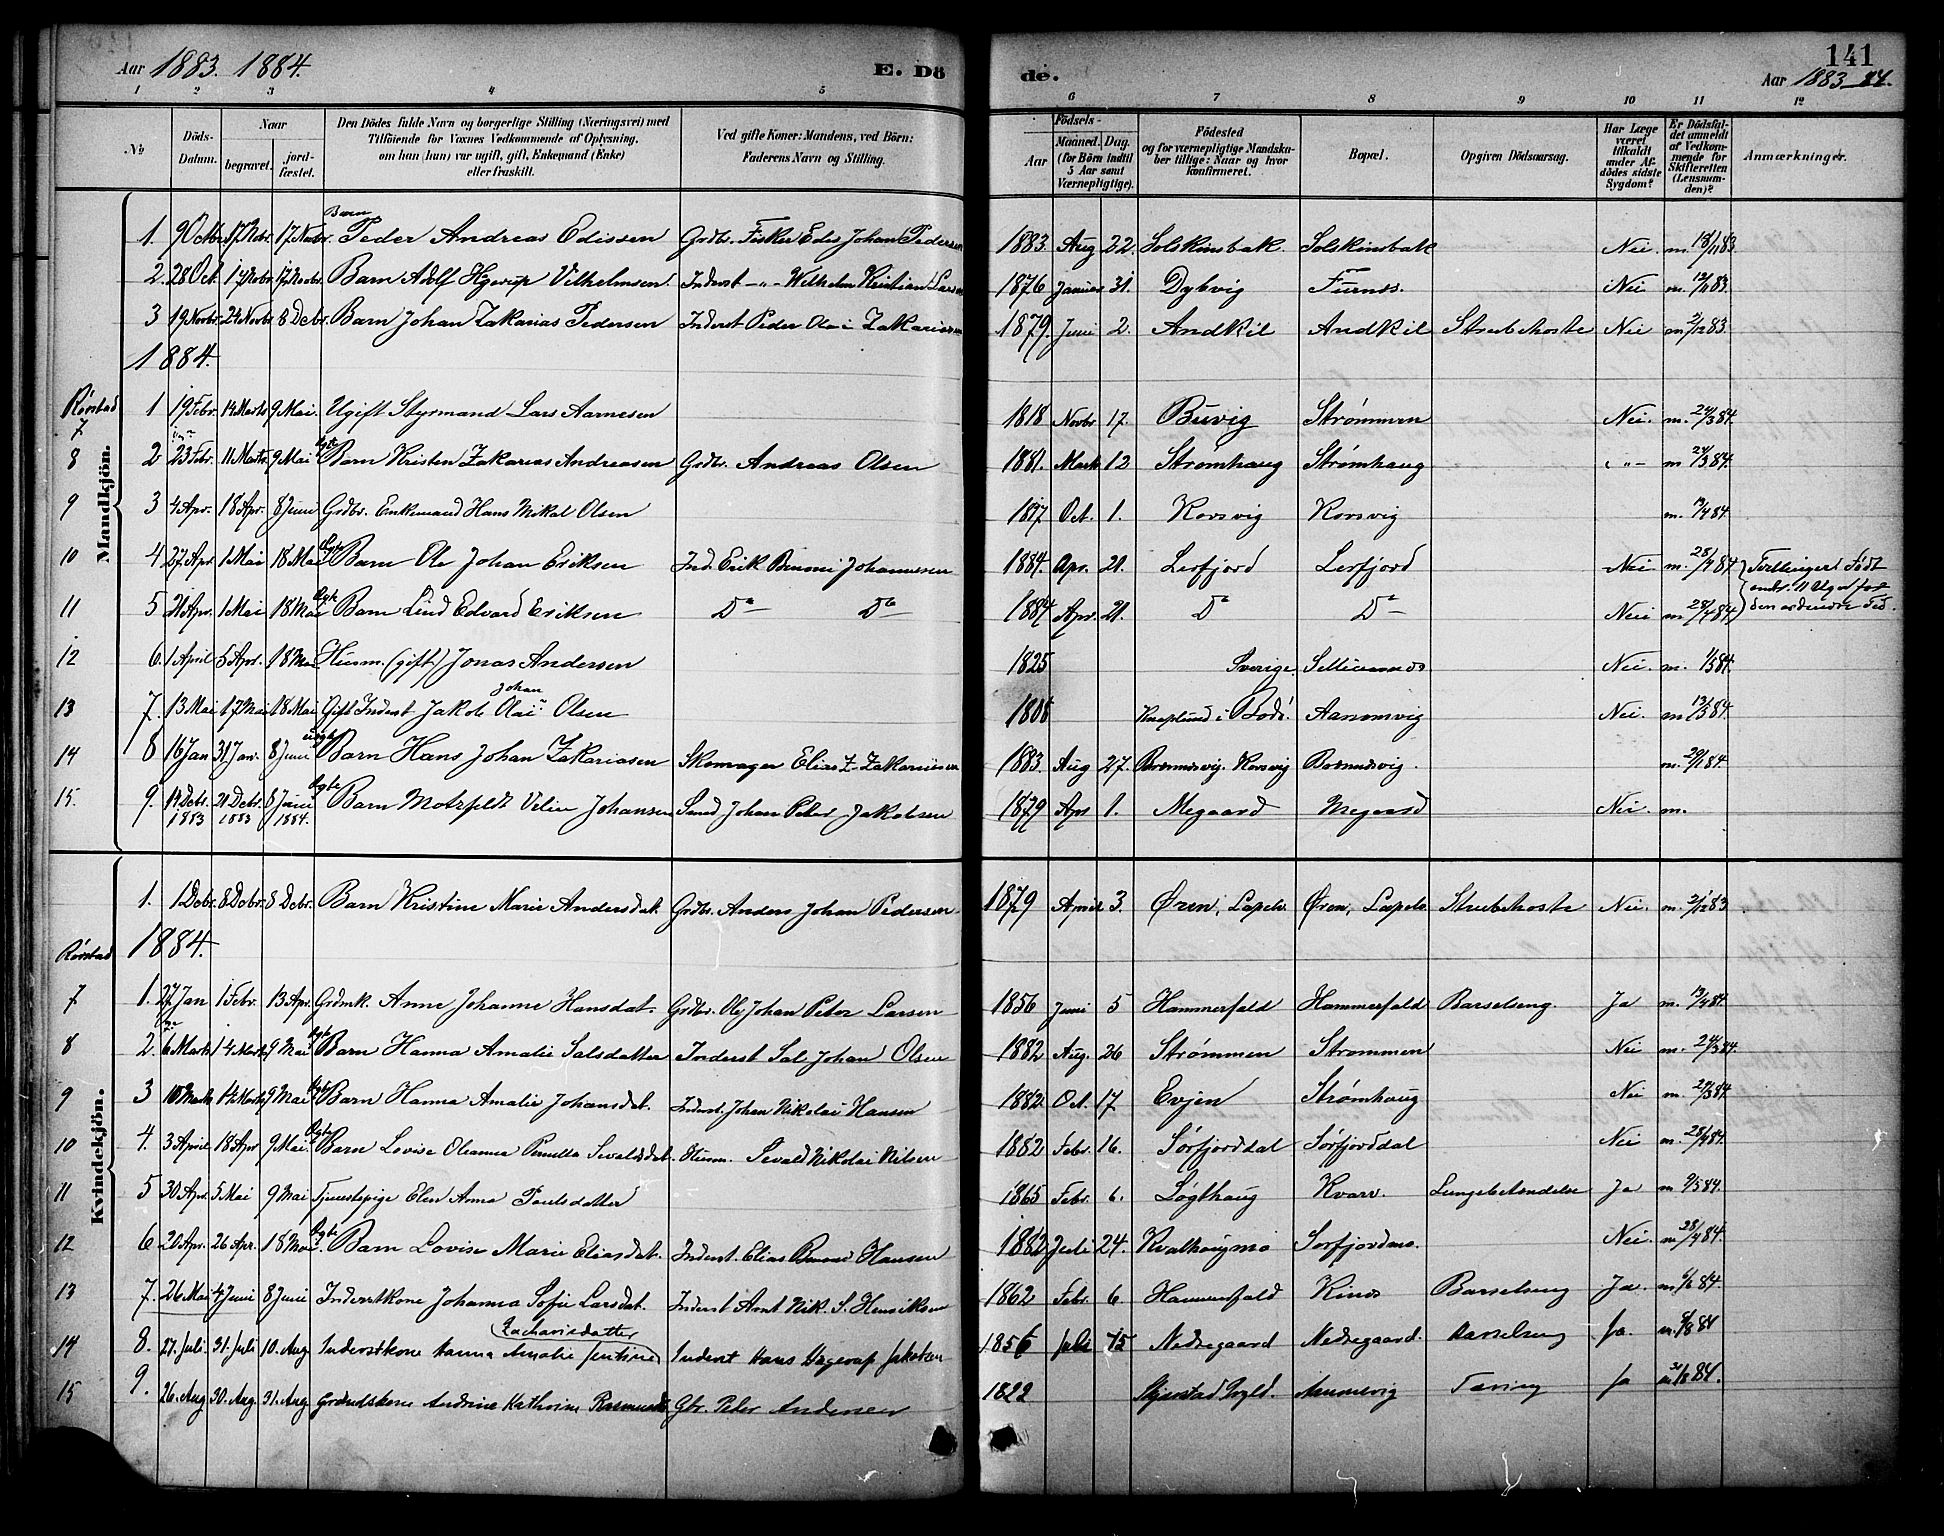 Aar 1883. 1884. E. Dö
de. Aar 1883-84.
141
1 2 3 4 5
6 7 8 9 10 11 12
No Döds-Datum. Naar begravet. jord-fæstet. Den Dödes fulde Navn og borgerlige Stilling (Næringsvei) med Tilföiende for Voxnes Vedkommende af Oplysning, om han (hun) var ugift, gift, Enkemand (Enke) eller fraskilt. Ved gifte Koner: Mandens, ved Börn: Faderens Navn og Stilling.
Födsels- Aar Maaned. Dag. (for Börn indtil 5 Aar samt Værnepligtige). Födested og for værnepligtige Mandskaber tillige: Naar og hvor konfirmeret. Bopæl. Opgiven Dödsaarsag. Har Læge været tilkaldt under Afdödes sidste Sygdom? Er Dödsfaldet anmeldt af Vedkommende for Skifteretten (Lensmanden)? Anmærkninger.
Mandkjön.
1. 9 Octbr. 17 Nobr. 17 Novbr. Barn Peder Andreas Edissen Grdbr. Fisker Edis Johan Pedersen 1883. Aug 22. Solskinsbak. Solskinsbak Nei. m. 18/11 83.
2. 28 Oct. 17 Nobr. 17 Novbr. Barn Adolf Hgerup Vilhelmsen. Inderst -"- Wilhelm Kristian Larsen 1876 Januar 31. Dybvig Furnes. Nei m. 12/11 83.
3 19 Novbr. 24 Novbr. 8 Debr. Barn Johan Zakarias Pedersen Inderst Peder Olai Zakariassen 1879. Juni 2. Andkil Andkil Strubehoste Nei m. 2/12 83.
1884.
Rørstad
7 1 19 Febr. 14 Marts 9 Mai. Ugift Styrmand Lars Aarnesen 1818 Novbr 17. Buvig Strømmen Nei. m. 24/3 84.
8 2 23 Febr. 11 Marts. 9 Mai Ægte Barn Kristen Zakarias Andreasen Grdbr. Andreas Olsen 1881. Marts 12 Strømhaug Strømhaug -"- m 24/3 84.
9 3 4 Apr. 18 Apr. 8 Juni Grdbr. Enkemand Hans Mikal Olsen 1817 Oct. 1. Korsvig Korsvig m. 19/4 84.
10 4 27 Apr. 1 Mai 18 Mai Ægte Barn Ole Johan Eriksen Ind. Erik Benoni Johannesen 1884. Apr. 21. Lerfjord Lerfjord Nei m. 28/4 84 Tvillinger! Født
11 5 21 Apr. 1 Mai 18 Mai Ægte Barn Lind Edvard Eriksen Do Do 1884 Apr. 21. Do Do Nei m 28/4 84 omtr. 11 Uger før den ordinære Tid.
12 6. 1 April 5 Apr. 18 Mai Husm. (gift) Jonas Andersen 1825 Sverige. Nei m. 1/5 84.
13 7. 13 Mai 17 Mai 18 Mai Gift Inderst Jakob Johan Olai Olsen 1806 Knaplund i Bodö. Nei. m 13/5 84.
14 8 16 Jan 31 Jan. 8 Juni uægte Barn Hans Johan Zakariasen Skomager Elias Z. Zakariasen 1883. Aug 27. Korsvig m. 20/1 84.
15. 9. 14 Debr. 1883 21 Debr. 1883 8 Juni 1884. Ægte Barn Motzfeldt Velin Johansen Smed Johan Peter Jakobsen 1879 Apr 1. Megaard Megaard Nei. m.
Kvindekjön.
1. 1 Debr. 8 Debr. 8 Debr. Barn Kristine Marie Andersdat. Grdbr. Anders Johan Pedersen. 1879 April 3. Øren, Øren, Strubehoste Nei. m. 2/12 83.
Rørstad 1884.
7 1. 27 Jan 1 Febr. 13 Apr. Grdmk. Anne Johanne Hansdat. Grdbr. Ole Johan Peter Larsen 1856 Juni 5 Hammerfald Hammerfald Barselseng. Ja m. 13/4 84.
8 2. 6 Marts 14 Marts 9 Mai Ægte Barn Hanna Amalie Salsdatter Inderst Sal Johan Olsen 1882 Aug. 26 Strømmen Strømmen Nei m. 24/3 84.
9 3 10 Marts 14 Marts 9 Mai Ægte Barn Hanna Amalie Johansdat. Inderst. Johan Nikolai Hansen 1882 Oct. 17 Evjen Strømhaug Nei m. 24/3 84.
10 4. 3 April 18 Apr 9 Mai. Ægte Barn Lovise Oleanna Pernilla Sevaldsdat. Husm. Sevald Nikolai Nilsen 1882 Febr. 16. Sørfjorddal Sørfjorddal Nei m. 28/4 84.
11 5 30 Apr. 5 Mai 9 Mai Tjenestepige Elen Anna Paulsdatter 1865 Febr. 6. Løgthaug Kvarv. Lungebetændelse Ja m 9/5 84.
12 6 20 Apr. 26 Apr. 18 Mai. Ægte Barn Lovise Marie Eliasdat. Inderst. Elias Hansen 1882 Juli 24. Kvalhaugmo Sørfjordmo. Nei. m. 28/4 84.
13 7. 26 Mai 4 Juni 8 Juni Inderstkone Johanna Sofie Larsdat. Inderst Arnt Nik. S. Henriksen 1862 Febr. 6 Hammerfald Kines Barselseng Ja. m 6/6 84.
14 8. 27. Juli 31. Juli 10. Aug Inderstkone Hanna Amalie Jentine Zachariedatter Inderst Hans Hgerup Jakobsen 1856 Juli 15 Nedregaard Nedregaard. Barselseng Ja. m. 6/8 84
15 9. 26. Aug 30. Aug. 31. Aug Grdmdskone Andrine Kathrine Rasmusd. Gbr. Peter Andersen 1822 Skjerstad Prgld. Tæring Ja m 31/8 84.